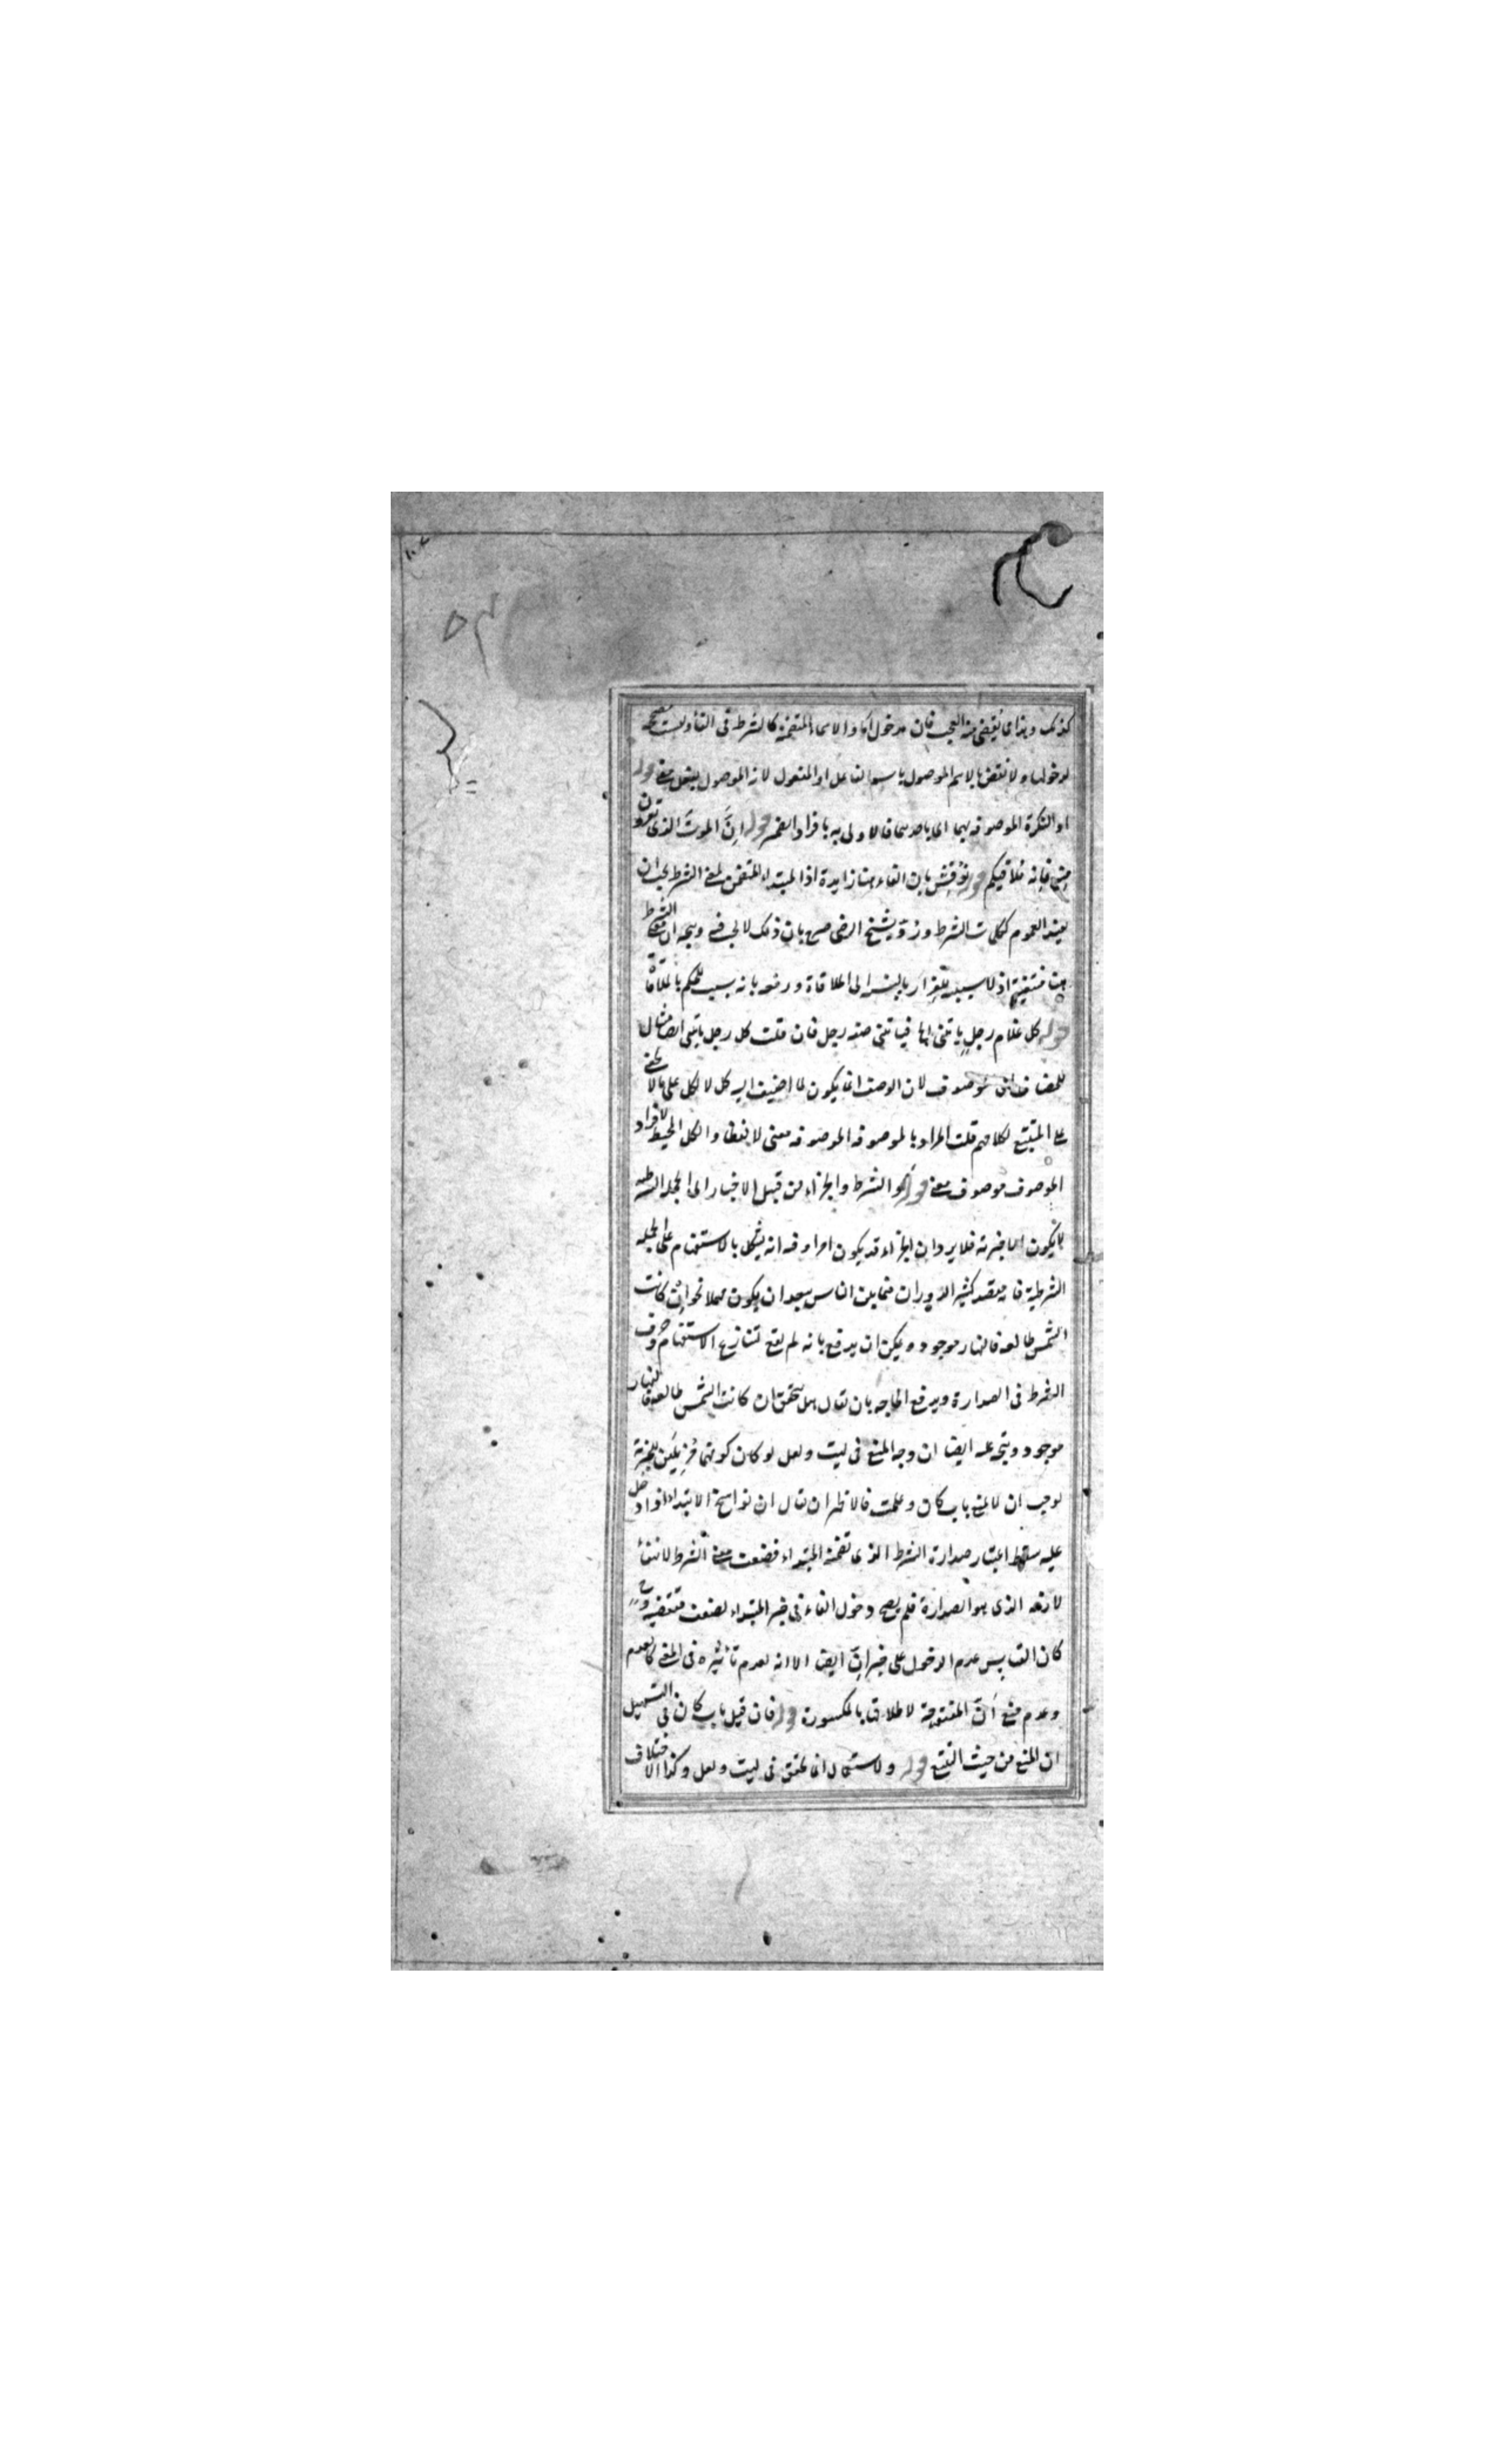 كذلك وهذا مما يقضى منه العجب فان مدخول اما والاسماء المتضمنة كالشرط فى التأويل ليست مصححة
لدخولها ولا ينتقض بالاسم الموصول باسم الفاعل او المفعول لانه الموصول بفعل معنى قوله
او النكرة الموصوفة بهما اى باحدهما فالاولى به بافراد الضمير قوله انّ الموت الذى تفرون
منه فانه ملاقيكم قوله نوقش بان الفاء هنا زايدة اذ المبتداء المتضمن لمعنى الشرط يجب ان
يفيد العموم ككلمات الشرط وزيفه الشيخ الرضى بان ذلك لا يجب فيه ويتجه ان معنى الشرط
هنا منتفية اذ لا سببية للفرار بالنسبة الى الملاقاة ودفعه بانه سبب للحكم بالملاقاة
قوله كل غلام رجل ياتينى اما فياتينى صفة رجل فان قلت كل رجل ياتينى ايضا مثال
للمضاف الى موصوف لان الوصف انما يكون لما اضيف اليه كل لا لكل على ما لا يخفى
على المتتبع لكلامهم قلت المراد بالموصوفة الموصوفة معنى لا لفظا والكل المحيط لافراد
الموصوف موصوف معنى قوله والشرط والجزاء من قبيل الاخبار اى الجملة الشرطية
لا يكون الا خبرية فلا يرد ان الجزاء قد يكون امرا وفيه انه يشكل بالاستفهام على الجملة
الشرطية فانه يقصد كثير الدوران فيما بين الناس يبعد ان يكون مهملا نحو أإن كانت
الشمس طالعة فالنهار موجود ويمكن ان يدفع بانه لم يقع تنازع الاستفهام وحرف
الشرط فى الصدارة ويدفع الحاجة بان يقال هل يتحقق ان كانت الشمس طالعة فالنهار
موجود ويتجه عليه ايضا ان وجه المنع فى ليت ولعل لو كان كونهما مزيلين للخبرية
لوجب ان لا يمنع باب كان وعلمت فالاظهر ان يقال ان نواسخ الابتداء اذا دخل
عليه سقط اعتبار صدارة الشرط الذى تضمنه المبتداء فضعفت معنى الشرط لانتفاء
لازمه الذى هو الصدارة فلم يصح دخول الفاء فى خبر المبتداء لضعف مقتضيه وح
كان القياس عدم الدخول على خبر انّ ايضا الا انه لعدم تأثيره فى المعنى كالعدم
وعدم منع أنّ المفتوحة لالحاقها بالمكسورة قوله فان قيل باب كان فى التسهيل
ان المنع من حيث التتبع قوله والاستعمال انما تحقق فى ليت ولعل وكذا الاختلاف